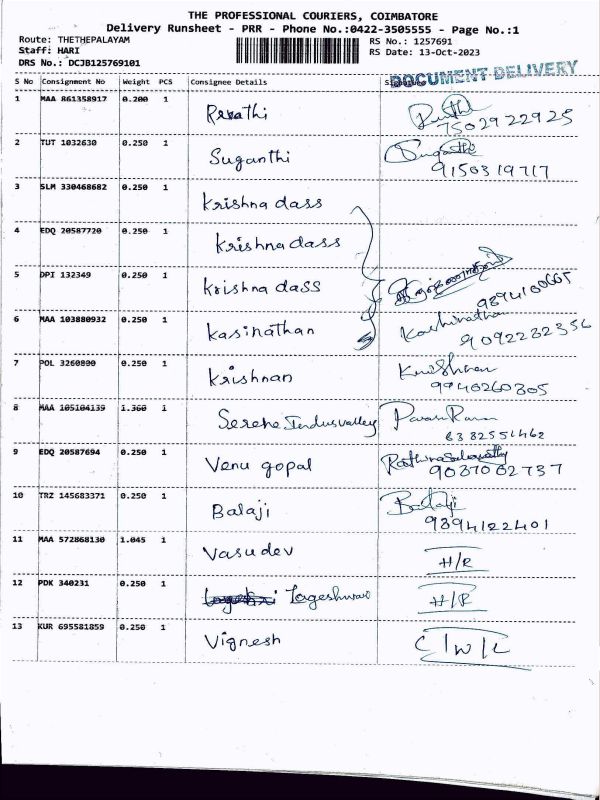 THE PROFESSIONAL COURIERS, COIMBATORE
Delivery Runsheet - PRR - Phone No.:0422-3505555 - Page No.:1
Route: THETHEPALAYAM RS No.: 1257691
Staff: HARI RS Date: 13-Oct-2023
DRS No.: DCJB125769101
DOCUMENT DELIVERY
S No Consignment No Weight PCS Consignee Details
1 MAA 861358917 0.200 1
7502922925
2 TUT 1032630 0.250 1 Suganthi Suganthi
9150319717
3 SLM 330468682 0.250 1 Krishna dass
4 EDQ 20587720 0.250 1 Krishna dass
5 DPI 132349 0.250 1 Krishna dass
9394100665
6 MAA 103880932 0.250 1 Kasinathan Kachinathan
9092232356
7 POL 3260800 0.250 1 Krishnan Krishnan
9940260305
8 MAA 105104139 1.360 1 Serene Indusvalley
6382551462
9 EDQ 20587694 0.250 1 Venu gopal
9037002737
10 TRZ 145683371 0.250 1 Balaji Balaji
9394122401
11 MAA 572868130 1.045 1 Vasudev H/R
12 PDK 340231 0.250 1 H/R
13 KUR 695581859 0.250 1 Vignesh C/W/L